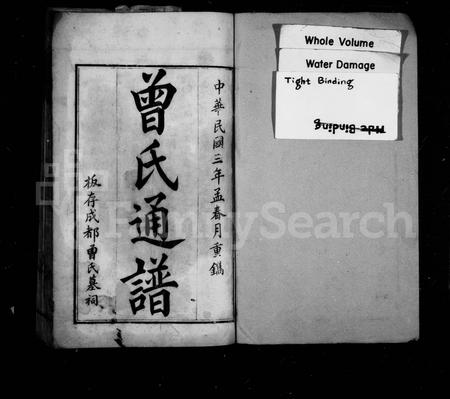 中華民國三年孟春月重鐫
曾氏通譜
板存成都曾氏墓祠
Whole Volume
Water Damage
Tight Binding
Mde Binding
FamilySearch